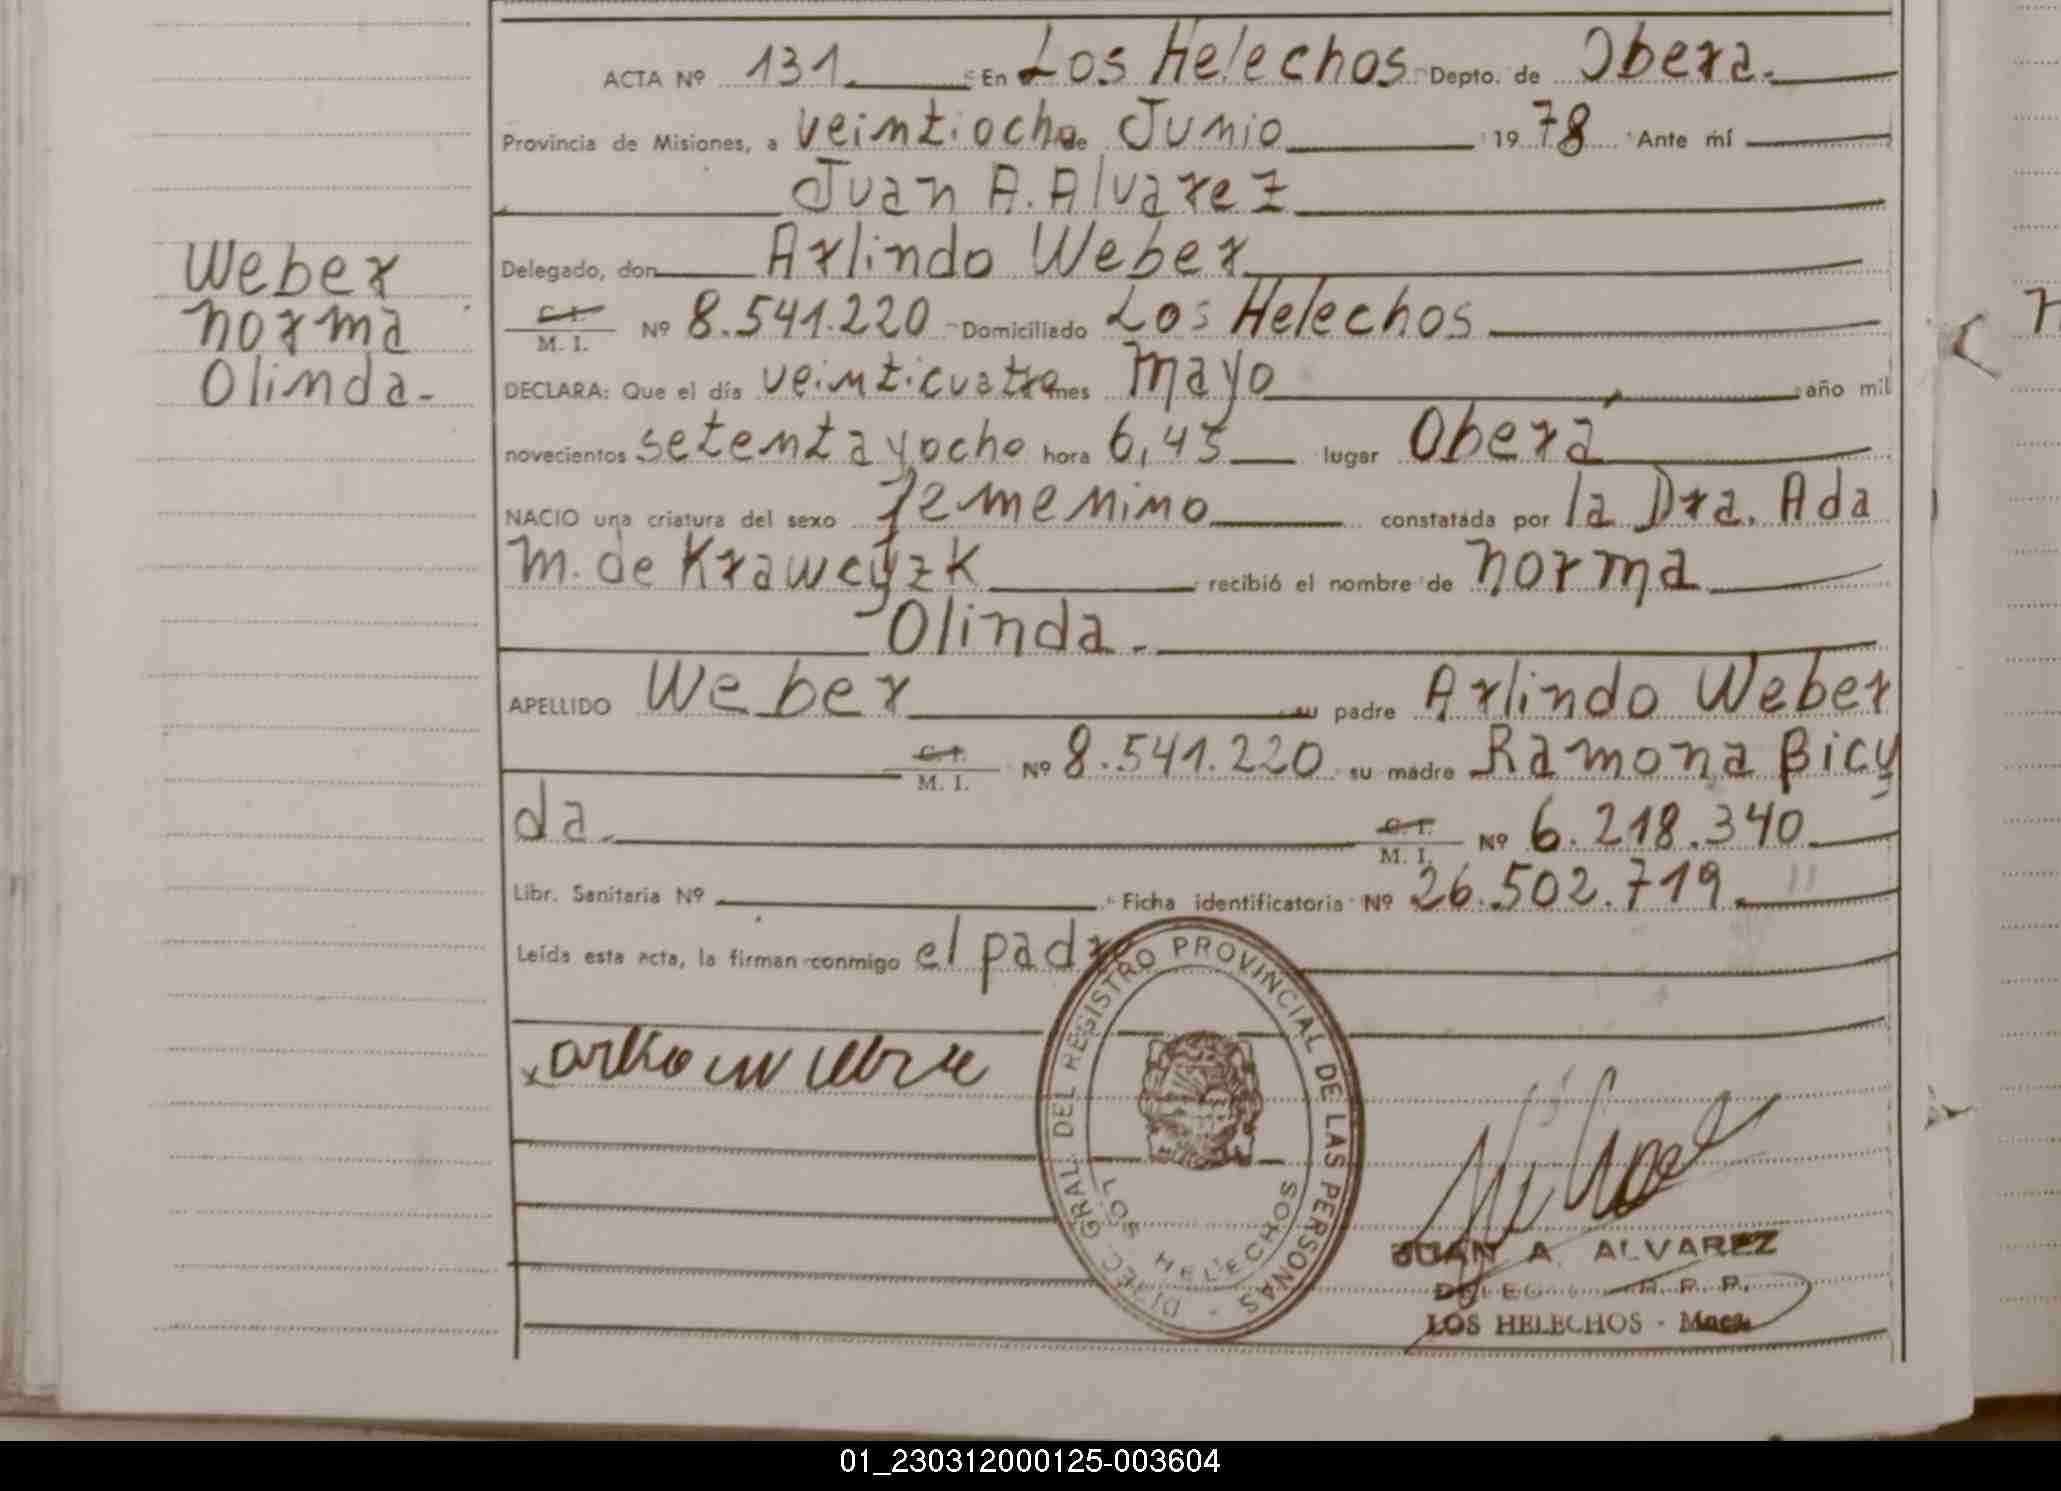 ACTA Nº 131. En Los Helechos Depto. de Obera.
Provincia de Misiones, a veintiocho de Junio 19 78 Ante mí
Juan A. Alvarez
Delegado, don Arlindo Weber
C. I. M. I. Nº 8.541.220 Domiciliado Los Helechos
DECLARA: Que el día veinticuatro mes mayo año mil
novecientos setenta y ocho hora 6,45 lugar Oberá
NACIO una criatura del sexo femenino constatada por la Dra. Ada
M. de Krawcyzk recibió el nombre de Norma
Olinda.
APELLIDO Weber su padre Arlindo Weber
C. I. M. I. Nº 8.541.220 su madre Ramona Bicu
da. C. I. M. I. Nº 6.218.340
Libr. Sanitaria Nº Ficha identificatoria Nº 26.502.719.
Leída esta acta, la firman conmigo el padre
Weber
Norma
Olinda.
DIREC. GRAL. DEL REGISTRO PROVINCIAL DE LAS PERSONAS -
LOS HELECHOS
JUAN A. ALVAREZ
R. P. P.
LOS HELECHOS - Mnes.
01_230312000125-003604